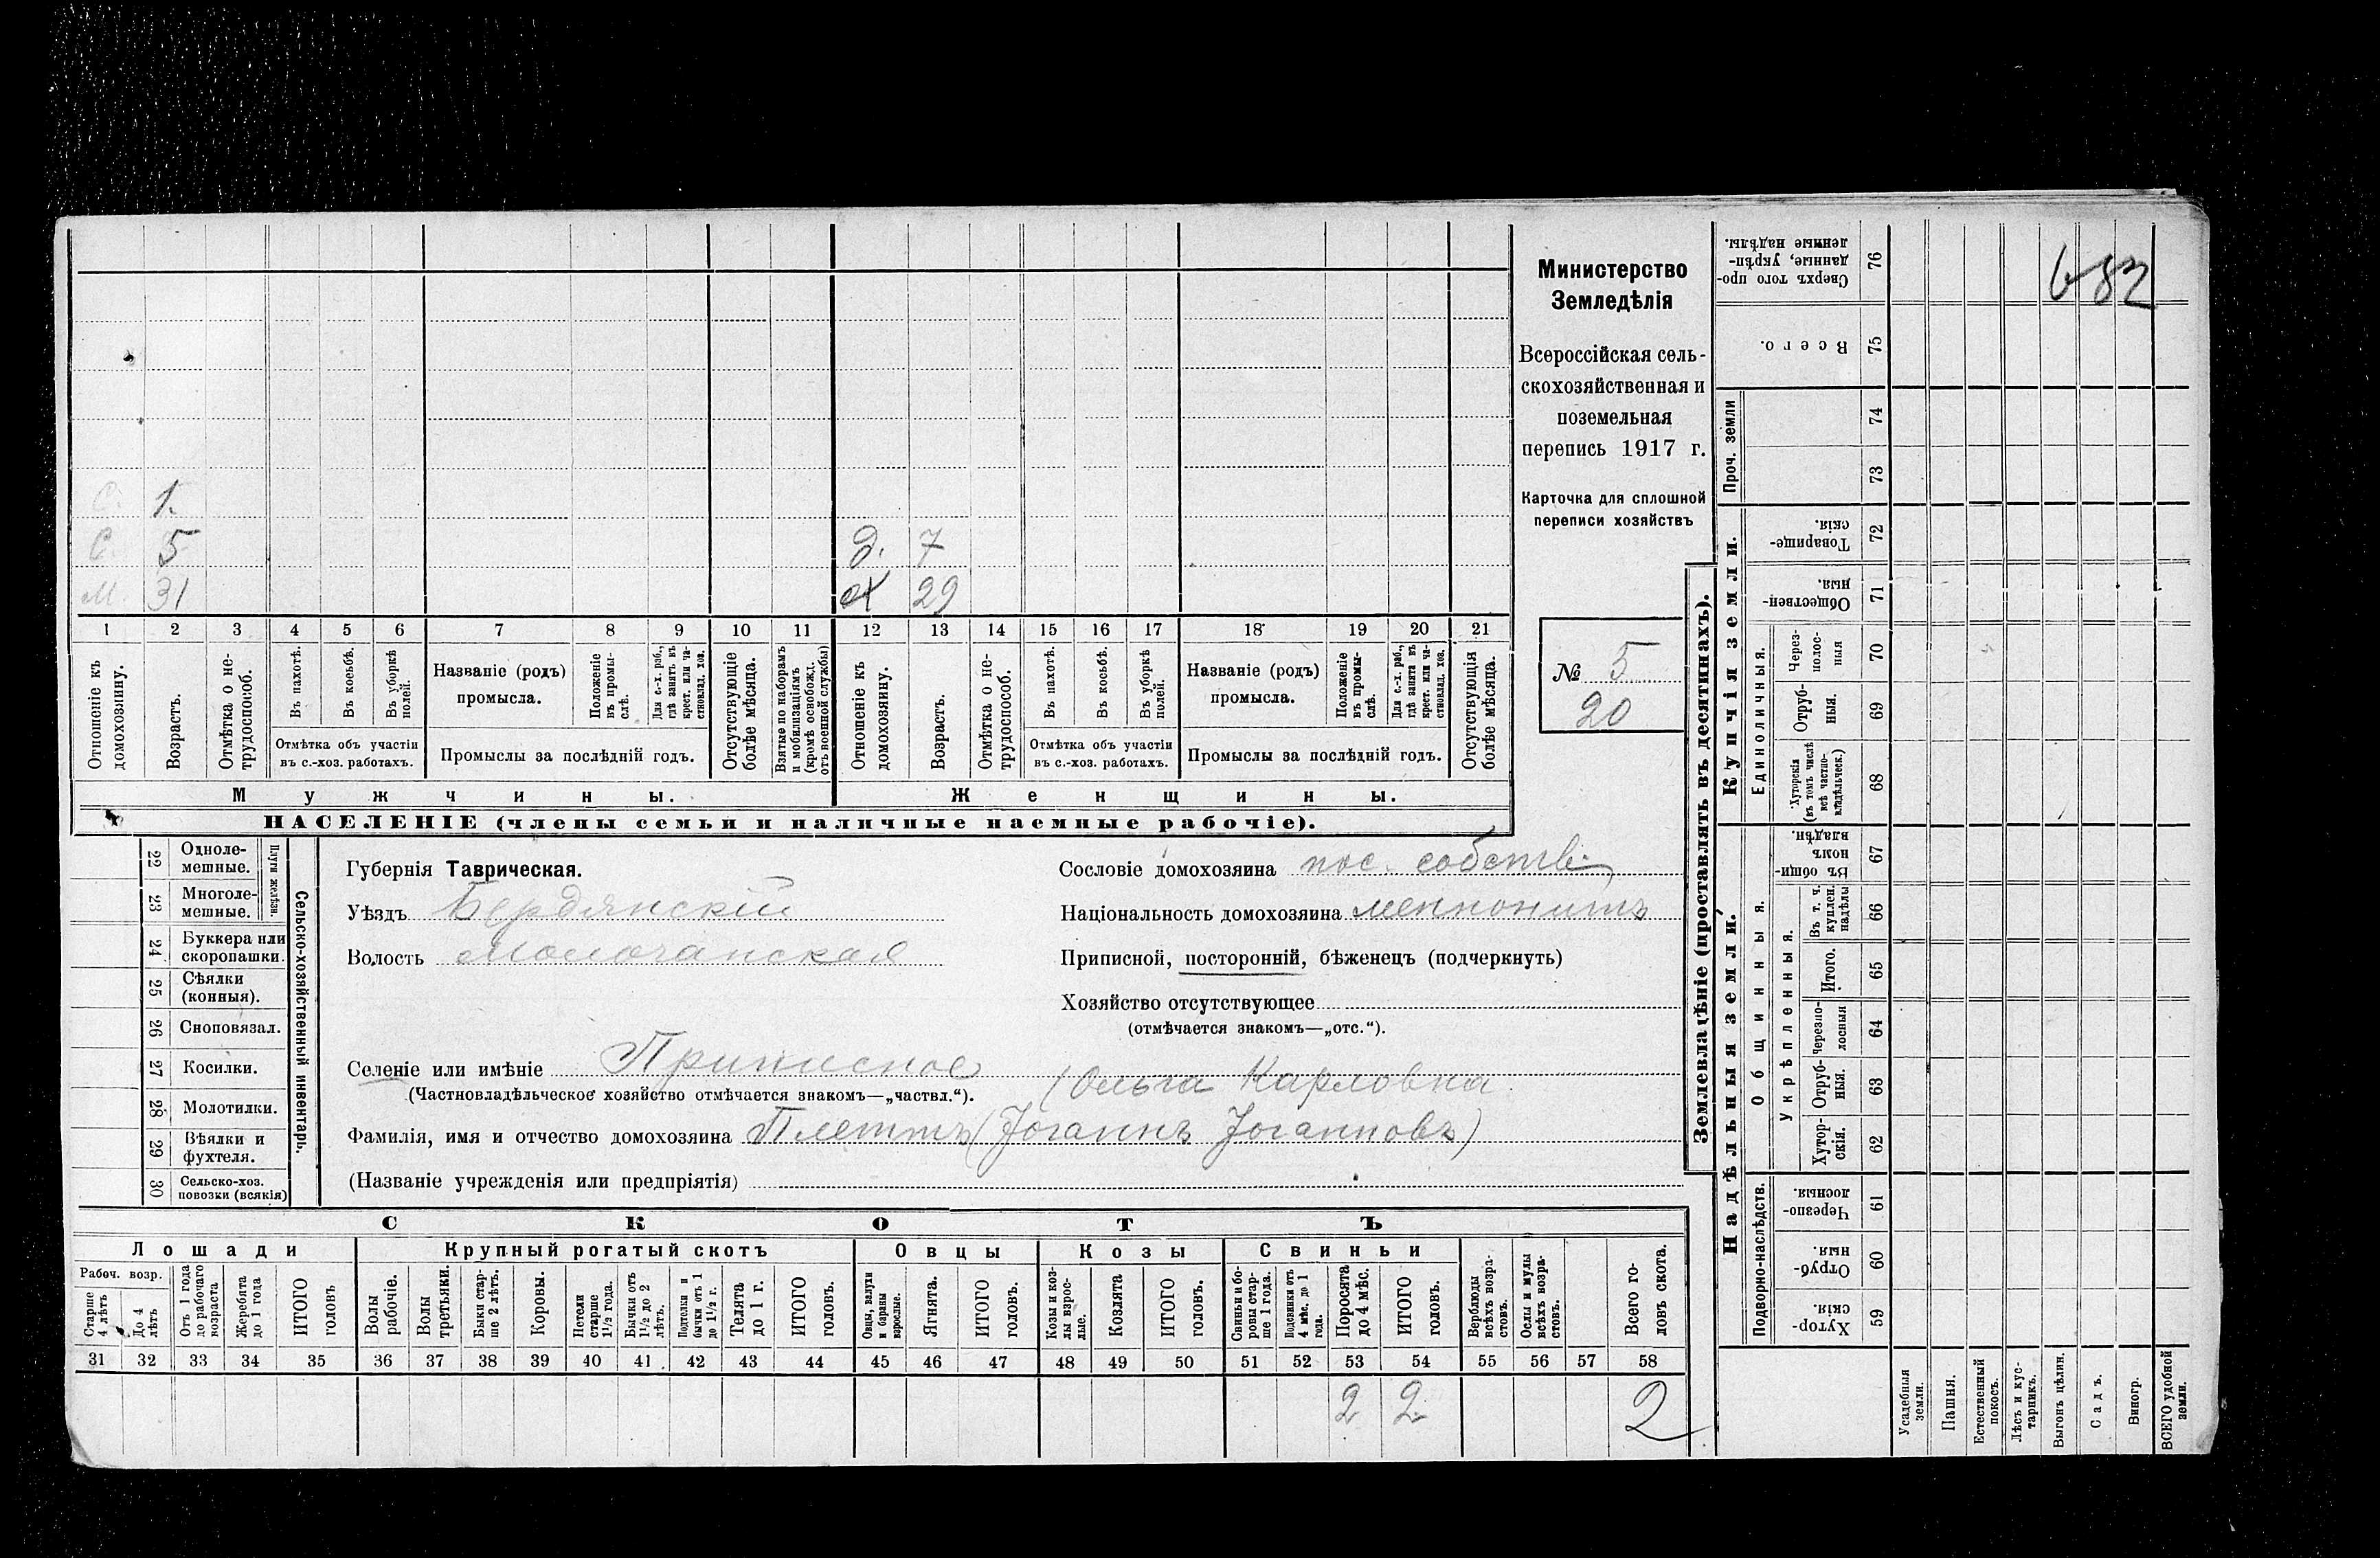 С. 1.
С. 5 д. 7
М. 31 29
1 2 3 4 5 6 7 8 9 10 11 12 13 14 15 16 17 18 19 20 21
Отношеніе къ домохозяину.
Возрастъ.
Отмѣтка о не-трудоспособ.
Въ пахотѣ.
Въ косьбѣ.
Въ уборкѣ полей.
Отмѣтка объ участіи
въ с.-хоз. работахъ.
Названіе (родъ)
промысла.
Положеніе въ промы-слѣ.
Для с.-х. раб., гдѣ занятъ въ крест. или ча-стновлад. хоз.
Промыслы за послѣдній годъ.
Отсутствующіе болѣе мѣсяца.
Взятые по наборамъ и мобилизаціямъ (кромѣ освобожд. отъ военной службы)
Отношеніе къ домохозяину.
Возрастъ.
Отмѣтка о не-трудоспособ.
Въ пахотѣ.
Въ косьбѣ.
Въ уборкѣ полей.
Отмѣтка объ участіи
въ с.-хоз. работахъ.
Названіе (родъ)
промысла.
Положеніе въ промы-слѣ.
Для с.-х. раб., гдѣ занята въ крест. или ча-стновлад. хоз.
Промыслы за послѣдній годъ.
Отсутствующія болѣе мѣсяца.
Мужчины. Женщины.
НАСЕЛЕНІЕ (члены семьи и наличные наемные рабочіе).
Министерство
Земледѣлія
Всероссійская сель-
скохозяйственная и
поземельная
перепись 1917 г.
Карточка для сплошной
переписи хозяйствъ
№ 5
20
Сельско-хозяйственный инвентарь.
Плуги желѣзн.
22 Одноле-мешные.
23 Многоле-мешные.
24 Буккера или скоропашки.
25 Сѣялки (конныя).
26 Сноповязал.
27 Косилки.
28 Молотилки.
29 Вѣялки и фухтеля.
30 Сельско-хоз. повозки (всякія)
Губернія Таврическая.
Уѣздъ Бердянскій
Волость Молочанская
Сословіе домохозяина пос. собств.
Національность домохозяина меннонитъ
Приписной, посторонній, бѣженецъ (подчеркнуть)
Хозяйство отсутствующее
(отмѣчается знакомъ—„отс.“).
Селеніе или имѣніе Приписное
(Частновладѣльческое хозяйство отмѣчается знакомъ—„частвл.“).
(Ольга Карловна
Фамилія, имя и отчество домохозяина Плеттъ (Іоганнъ Іоганновъ)
(Названіе учрежденія или предпріятія)
СКОТЪ
Лошади Крупный рогатый скотъ Овцы Козы Свиньи
Рабоч. возр.
Старше 4 лѣтъ
До 4 лѣтъ
Отъ 1 года до рабочаго возраста
Жеребята до 1 года
ИТОГО головъ
Волы рабочіе.
Волы третьяки.
Быки стар-ше 2 лѣтъ.
Коровы.
Нетели старше 1½ года.
Бычки отъ 1½ до 2 лѣтъ.
Подтелки и бычки отъ 1 до 1½ г.
Телята до 1 г.
ИТОГО головъ.
Овцы, валухи и бараны взрослые.
Ягнята.
ИТОГО головъ.
Козы и коз-лы взрос-лые.
Козлята
ИТОГО головъ.
Свиньи и бо-ровы стар-ше 1 года.
Подсвинки отъ 4 мѣс. до 1 года.
Поросята до 4 мѣс.
ИТОГО головъ.
Верблюды всѣхъ возра-стовъ.
Ослы и мулы всѣхъ возра-стовъ.
Всего го-ловъ скота.
31 32 33 34 35 36 37 38 39 40 41 42 43 44 45 46 47 48 49 50 51 52 53 54 55 56 57 58
2 2 2
Землевладѣніе (проставлять въ десятинахъ).
Надѣльныя земли. Купчія земли.
Проч. земли
Подворно-наслѣдств.
Общинныя.
Укрѣпленныя.
Единоличныя.
Сверхъ того про-данные, укрѣп-ленные надѣлы. 76
Всего. 75
74
73
Товарище-скія. 72
Обществен-ныя. 71
Через-полос-ныя 70
Отруб-ныя. 69
Хуторскія (въ томъ числѣ всѣ частно-владѣльческ.) 68
Въ общи-номъ владѣн. 67
Въ т. ч. куплен. надѣлы 66
Итого. 65
Черезпо-лосныя 64
Отруб-ныя. 63
Хутор-скія. 62
Черезпо-лосныя. 61
Отруб-ныя. 60
Хутор-скія. 59
Усадебныя земли.
Пашня.
Естественный покосъ.
Лѣсъ и кус-тарникъ.
Выгонъ цѣлин.
Садъ.
Виногр.
ВСЕГО удобной земли.